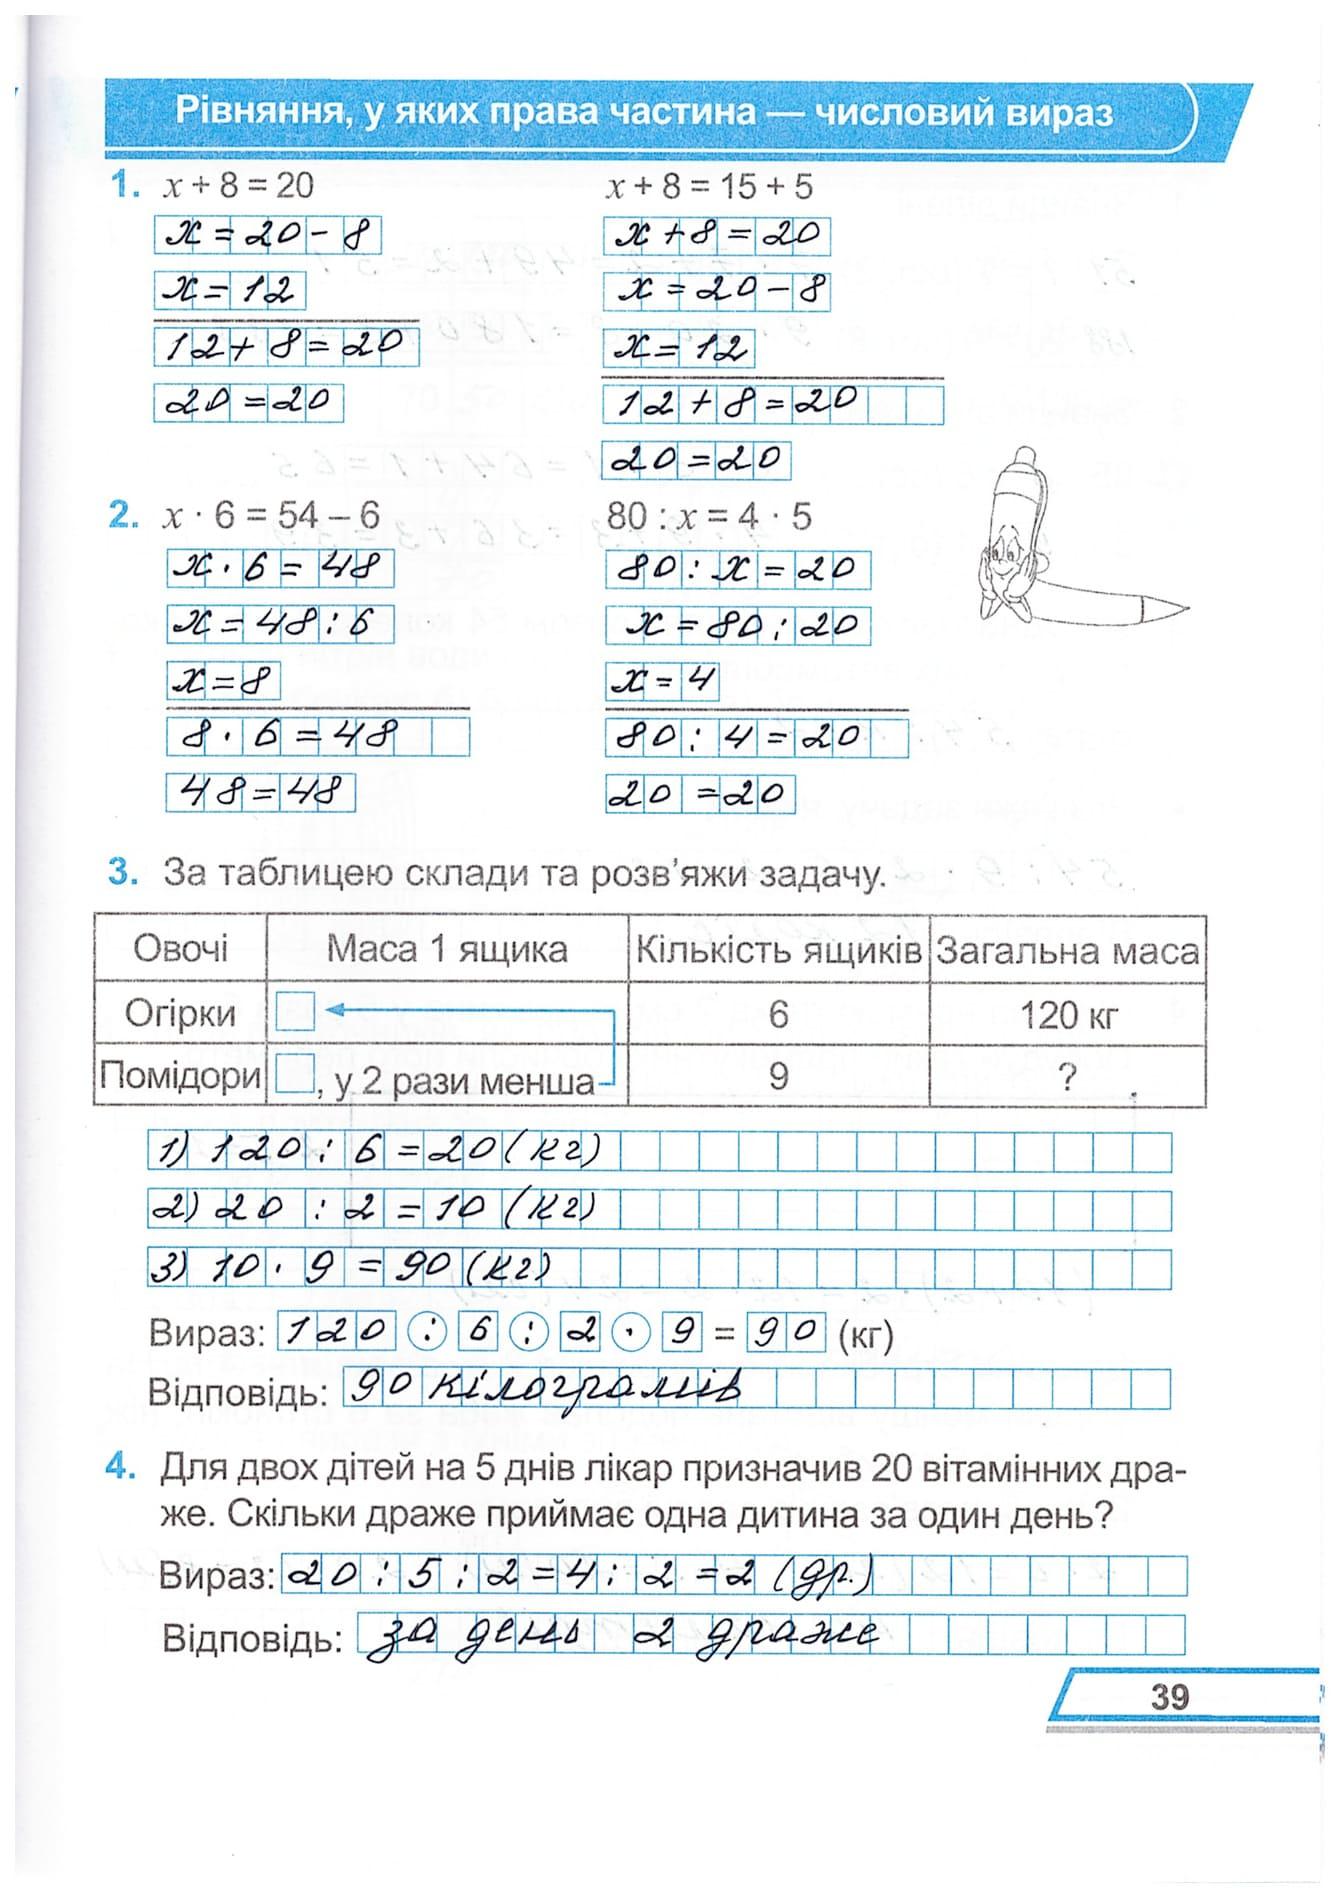 Рівняння, у яких права частина — числовий вираз
1. x + 8 = 20
x = 20 - 8
x = 12
12 + 8 = 20
20 = 20
x + 8 = 15 + 5
x + 8 = 20
x = 20 - 8
x = 12
12 + 8 = 20
20 = 20
2. x · 6 = 54 – 6
x · 6 = 48
x = 48 : 6
x = 8
8 · 6 = 48
48 = 48
80 : x = 4 · 5
80 : x = 20
x = 80 : 20
x = 4
80 : 4 = 20
20 = 20
3. За таблицею склади та розв'яжи задачу.
Овочі Маса 1 ящика Кількість ящиків Загальна маса
Огірки 6 120 кг
Помідори , у 2 рази менша 9 ?
1) 120 : 6 = 20 (кг)
2) 20 : 2 = 10 (кг)
3) 10 · 9 = 90 (кг)
Вираз: 120 : 6 : 2 · 9 = 90 (кг)
Відповідь: 90 кілограмів
4. Для двох дітей на 5 днів лікар призначив 20 вітамінних дра-
же. Скільки драже приймає одна дитина за один день?
Вираз: 20 : 5 : 2 = 4 : 2 = 2 (др.)
Відповідь: за день 2 драже
39